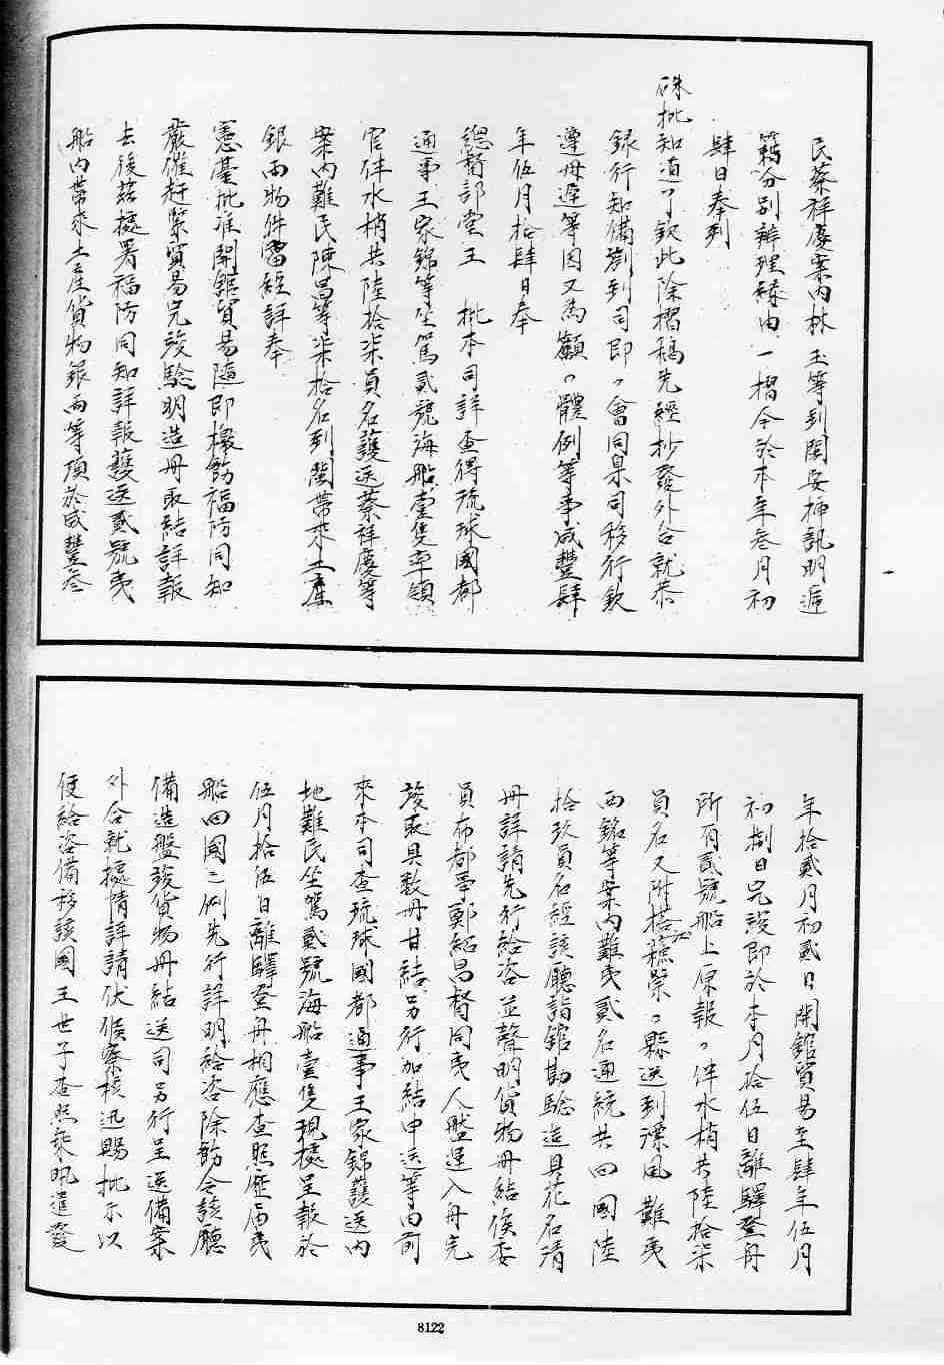 民蔡祥慶案內林玉等到閩安插訊明遞
籍分別辦理緣由一摺今於本年叁月初
肆日奉到
硃批知道了欽此除摺稿先經抄發外合就恭
錄行知備劄到司即〻會同臬司移行欽
遵毋違等因又為籲〻體例等事咸豐肆
年伍月拾肆日奉
總督部堂王　批本司詳查得琉球國都
通事王家錦等坐駕貳號海船壹隻率領
官伴水梢共陸拾柒員名護送蔡祥慶等
案內難民陳昌等柒拾名到閩帶來土產
銀兩物件當經詳奉
憲臺批准開館貿易隨即檄飭福防同知
嚴催赶緊貿易完竣驗明造冊取結詳報
去後茲據署福防同知詳報護送貳號夷
船內帶來土產貨物銀兩等項於咸豐叁
年拾貳月初貳日開館貿易至肆年伍月
初捌日完竣即於本月拾伍日離驛登舟
所有貳號船上原報〻伴水梢共陸拾柒
員名又附搭穗縣〻縣送到漂風難夷
西銘等案內難夷貳名通統共回國陸
拾玖員名經該廳詣館勘驗造具花名清
冊詳請先行給咨並聲明貨物冊結俟委
員布都事鄭紹昌督同夷人盤運入舟完
竣取具數冊甘結另行加結申送等由前
來本司查琉球國都通事王家錦護送內
地難民坐駕貳號海船壹隻現據呈報於
伍月拾伍日離驛登舟相應查照歷屆夷
船回國之例先行詳明給咨除飭令該廳
備造盤竣貨物冊結送司另行呈送備案
外合就據情詳請伏候察核迅賜批示以
便給咨備移該國王世子查照乘汛遣發
8122